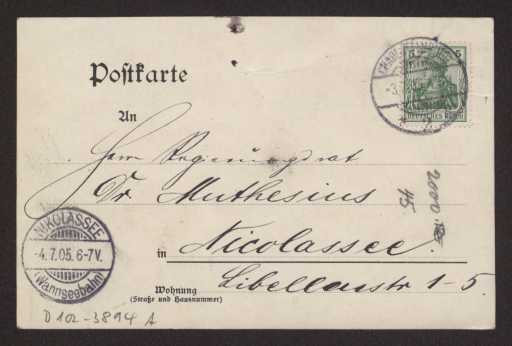 Postkarte
5 5
DEUTSCHES REICH
An
Herrn Regierungsrat
Dr. Muthesius
2000
45
NIKOLASSEE
-4.7.05.6-7V.
(Wannseebahn)
in Nicolassee.
Libellenstr 1-5.
Wohnung
(Straße und Hausnummer)
D 102-3894 A